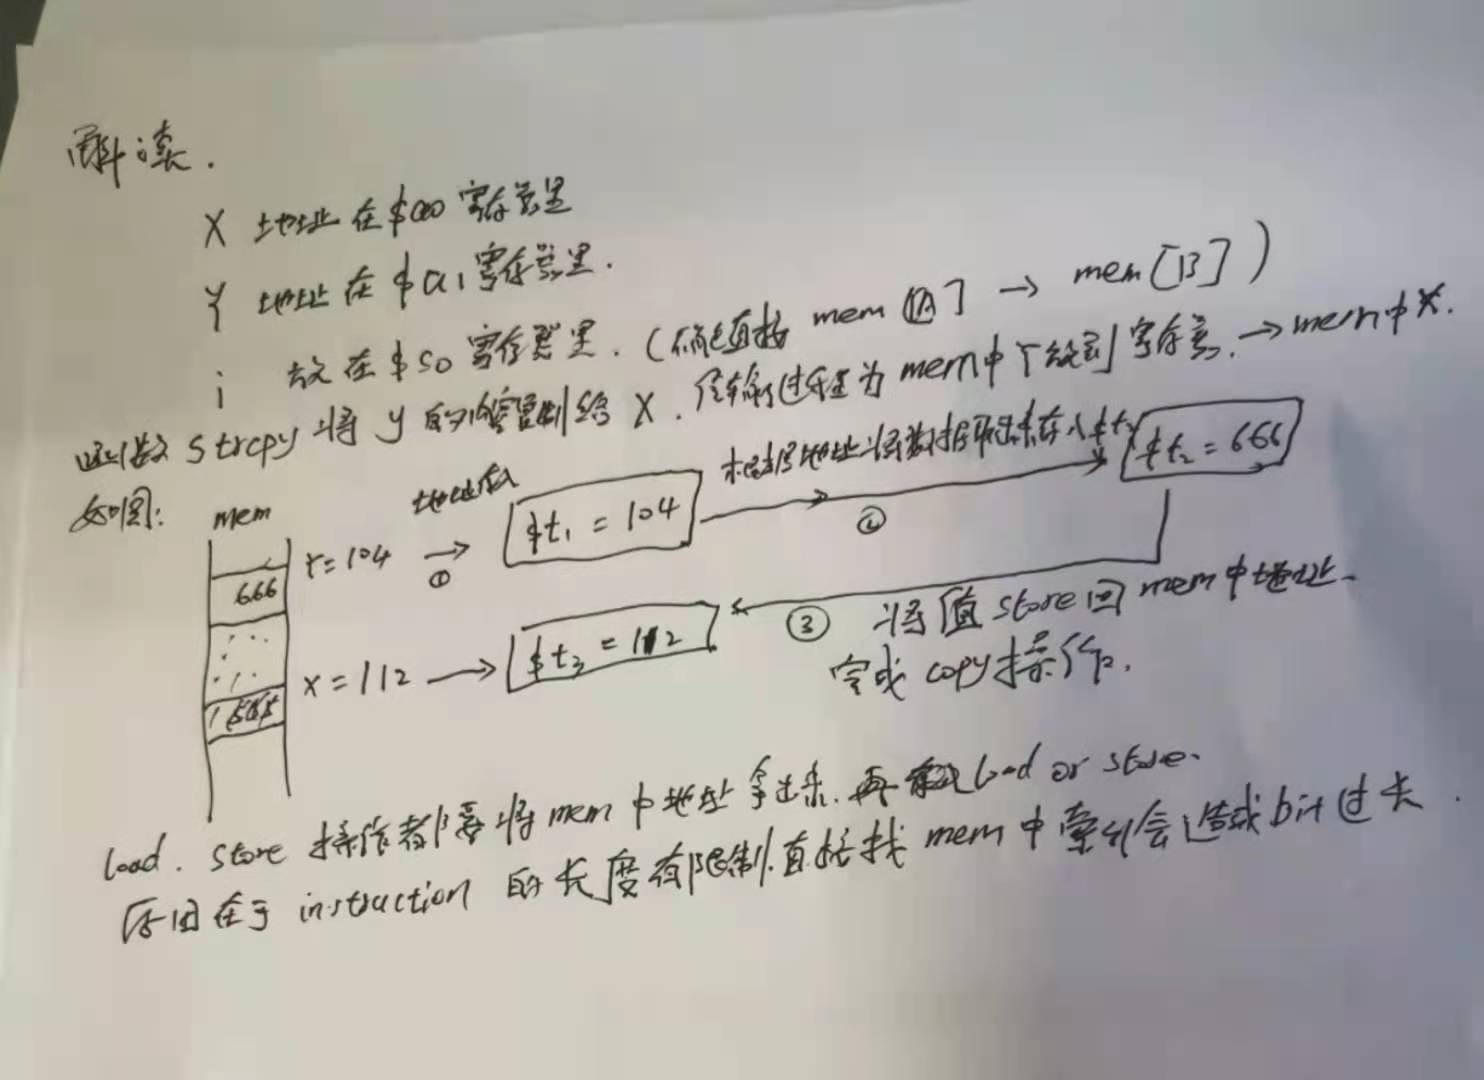 解读.
X 地址在$a0 寄存器里
Y 地址在$a1寄存器里.
i 放在$s0寄存器里. (不能直接 mem[A] → mem[B])
函数 strcpy 将 y 的内容复制给 X. 传输过程为 mem中Y放到寄存器. → mem中X.
如图:
mem
地址放入
①
$t1 = 104
根据地址将数据取出来存入$t2
②
$t2 = 666
Y=104
666
X=112
$t3 = 112
③ 将值store回mem中地址.
完成copy操作.
load. store 操作者都要将mem中地址拿出来. 再 load or store.
原因在于 instruction 的长度有限制. 直接找 mem 中 会造成bit过长.